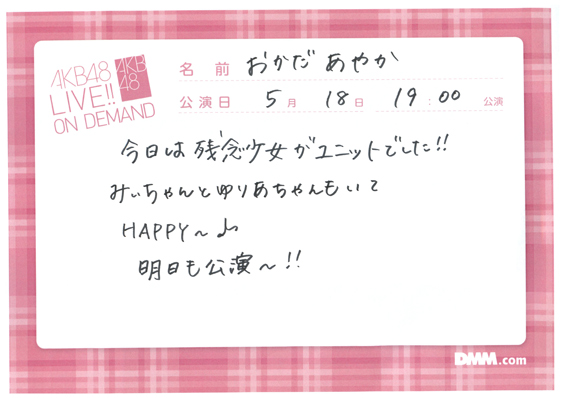 AKB48
LIVE!!
ON DEMAND
AKB
48
名 前 おかだ あやか
公演日 5月 18日 19:00 公演
今日は残念少女がユニットでした!!
みぃちゃんとゆりあちゃんもいて
HAPPY〜♪
明日も公演〜!!
DMM.com